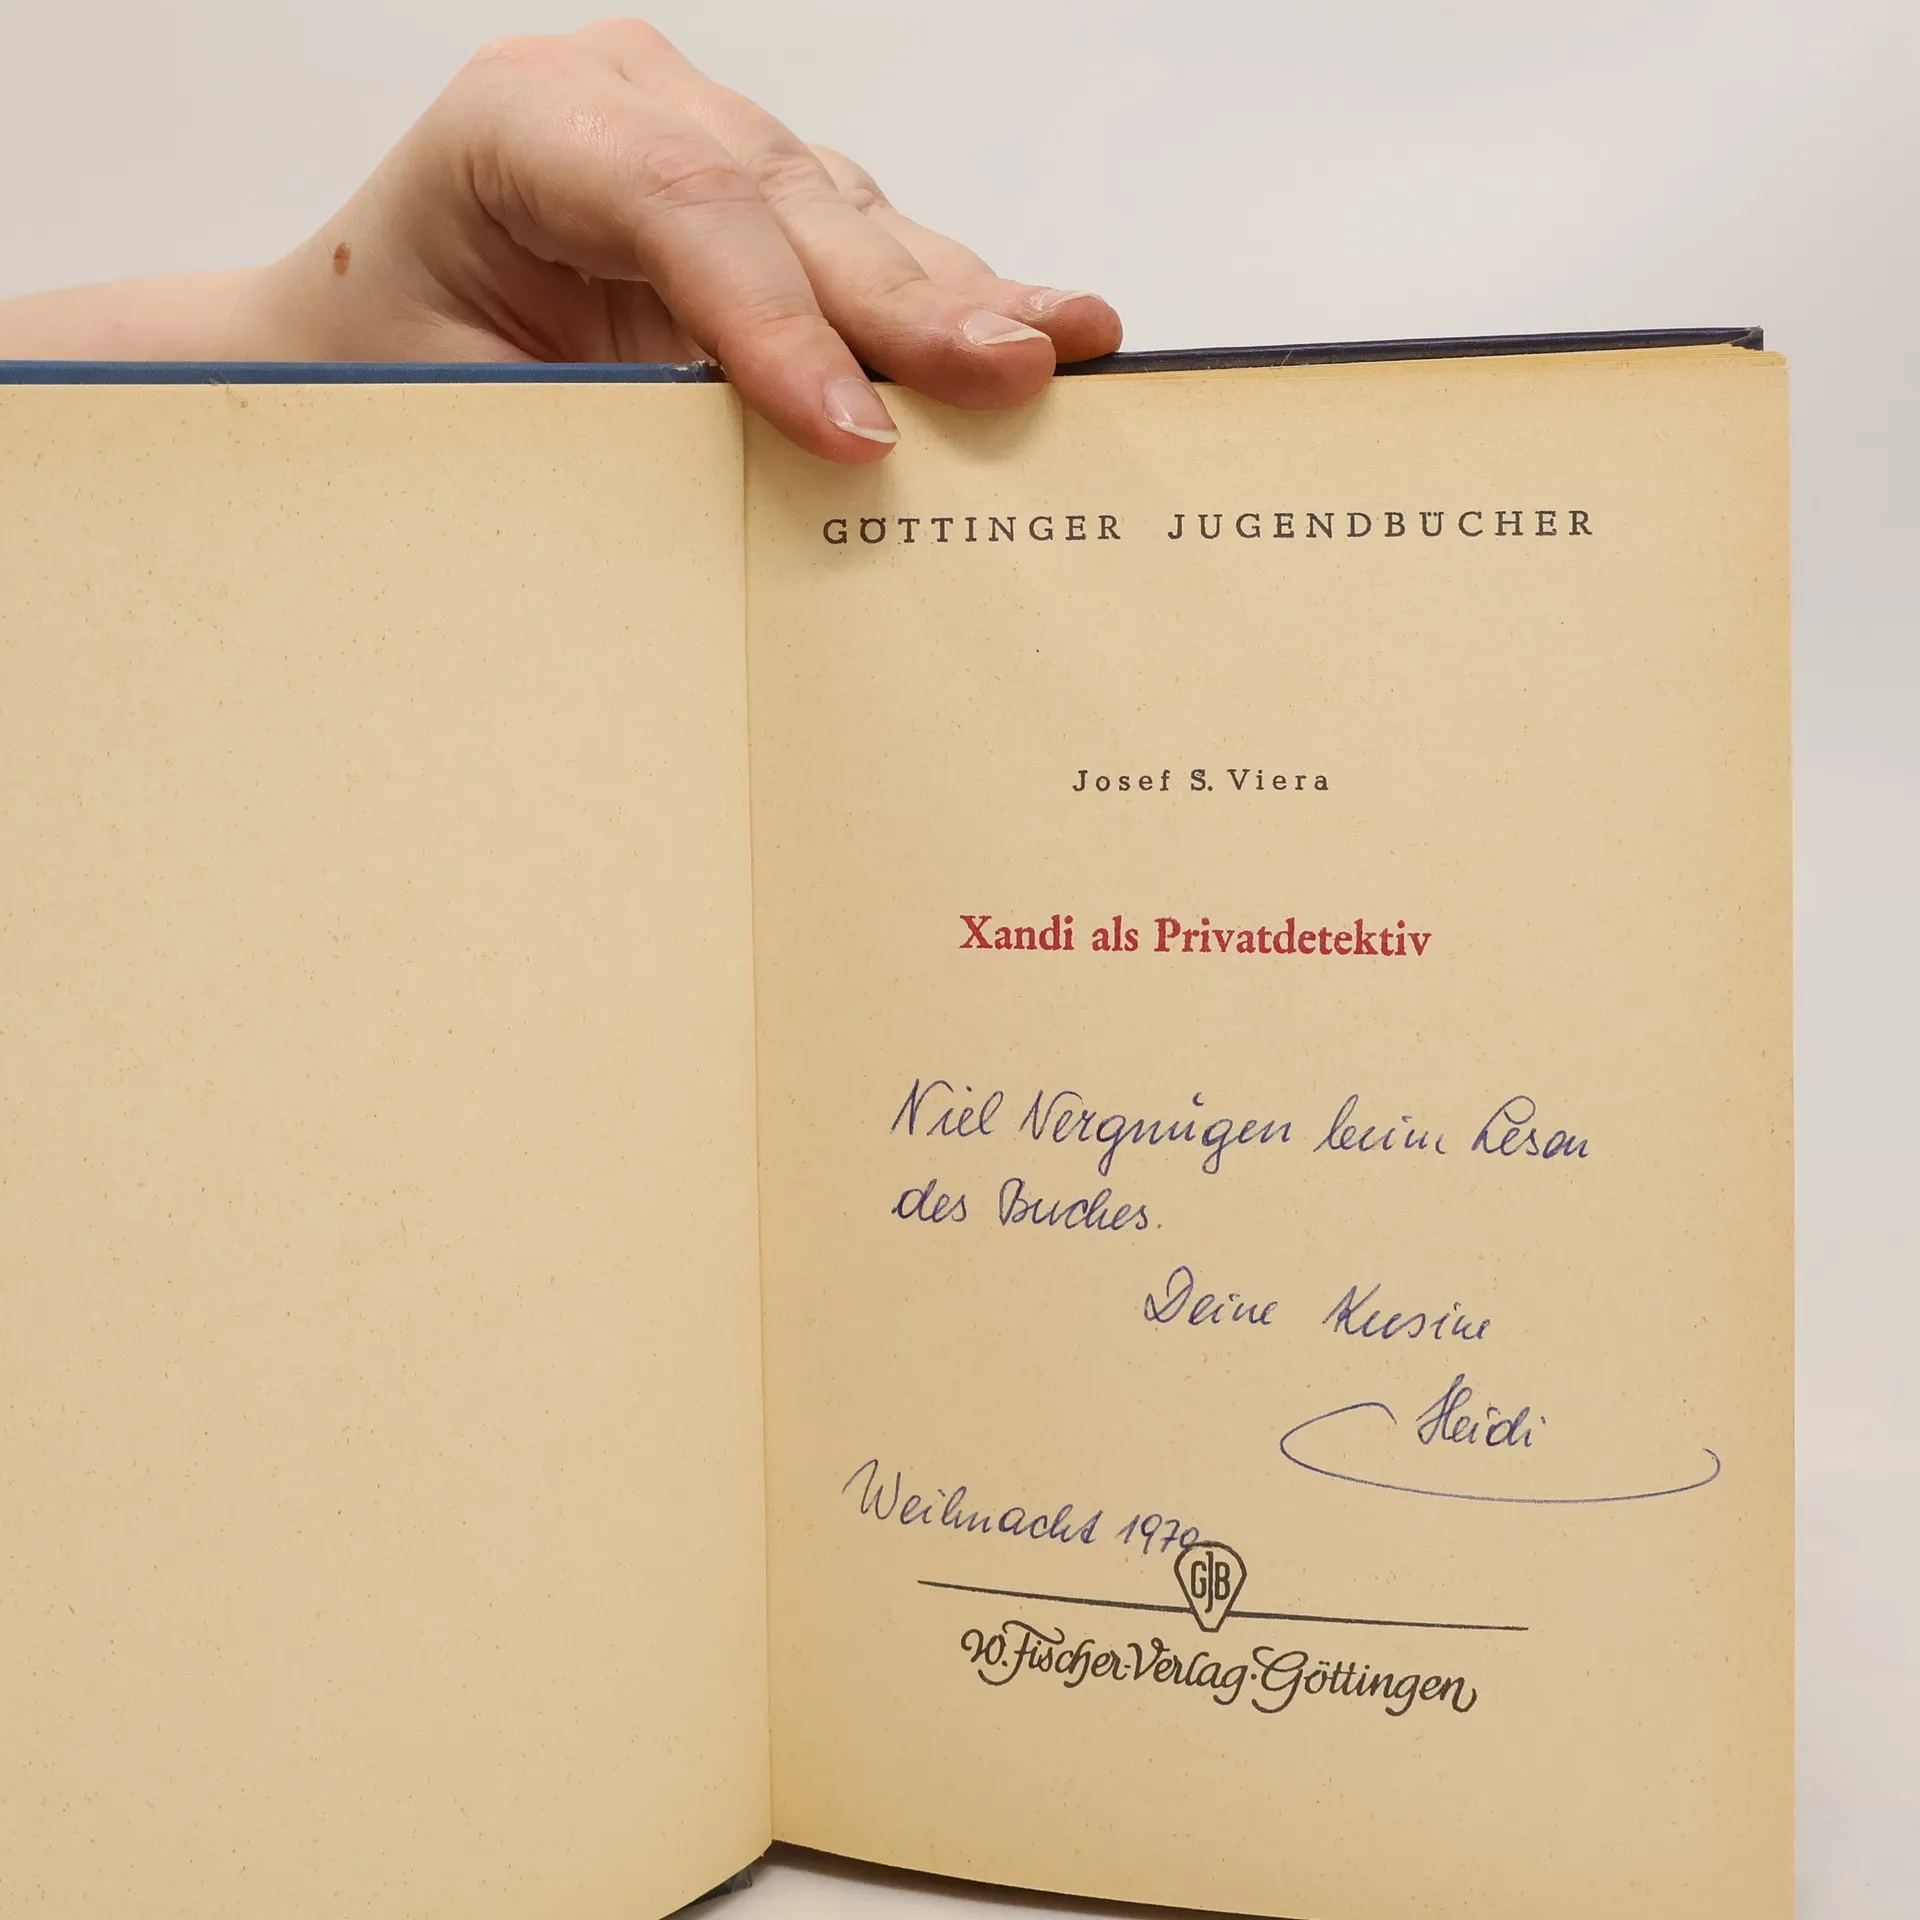 GÖTTINGER JUGENDBÜCHER
Josef S. Viera
Xandi als Privatdetektiv
Viel Vergnügen beim Lesen
des Buches.
Deine Kusine
Heidi
Weihnacht 1970
GJB
W. Fischer-Verlag · Göttingen